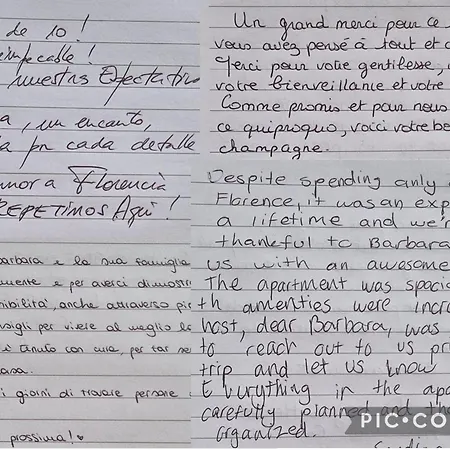 de 10!
impecable!
nuestras Expectativ
a, un encanto,
a en cada detalle
Florencia
REPETIMOS AQUí!
Un grand merci pour ce
vous avez pensé à tout et c
Merci pour votre gentilesse,
votre bienveillance et votre
Comme promis et pour nous
ce quiproquo, voici votre be
champagne.
arbara e la sua famiglia
mente e per averci dimostr
nibilità, anche attraverso pic
nsigli per vivere al meglio la
tenuto con cura, per far se
casa.
i giorni di trovare persone
prossima!
Despite spending only
Florence, it was an exp
a lifetime and we'r
thankful to Barbara
us with an awesome
The apartment was spacio
th amenities were incre
host, dear Barbara, was
to reach out to us pri
trip and let us know
Everything in the apa
carefully planned and th
organized.
PIC•CO